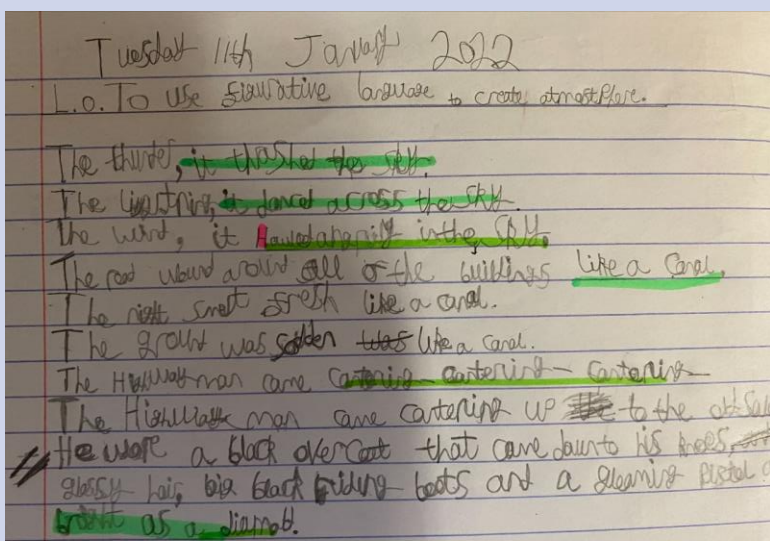 Tuesday 11th Januay 2022
L.O. To use figurative language to create atmostphere.
The thunder, it thrashed the sky.
The lightning, it danced across the sky.
The wind, it Howled angrily in the sky.
The road wound around all of the buildings like a Canal.
The night smelt fresh like a canal.
The ground was sodden was like a canal.
The Highwayman came cantering - cantering - cantering
The Highwayman came cantering up to the old
He wore a black overcoat that came down to his knees,
glossy hair, big black riding boots and a gleaming pistol
bright as a diamond.